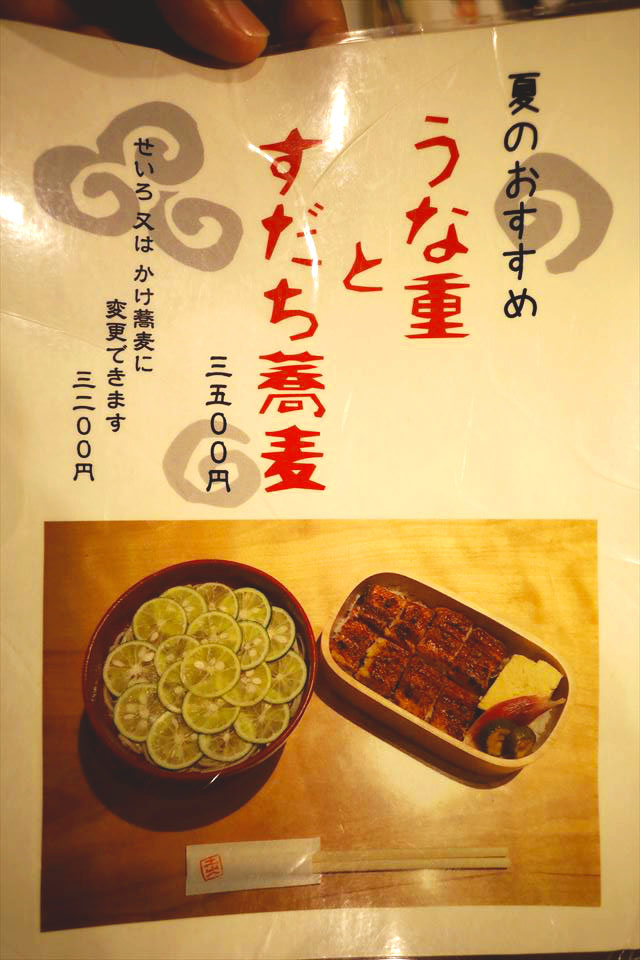 夏のおすすめ
うな重
と
すだち蕎麦
三五００円
せいろ又はかけ蕎麦に
変更できます
三二００円